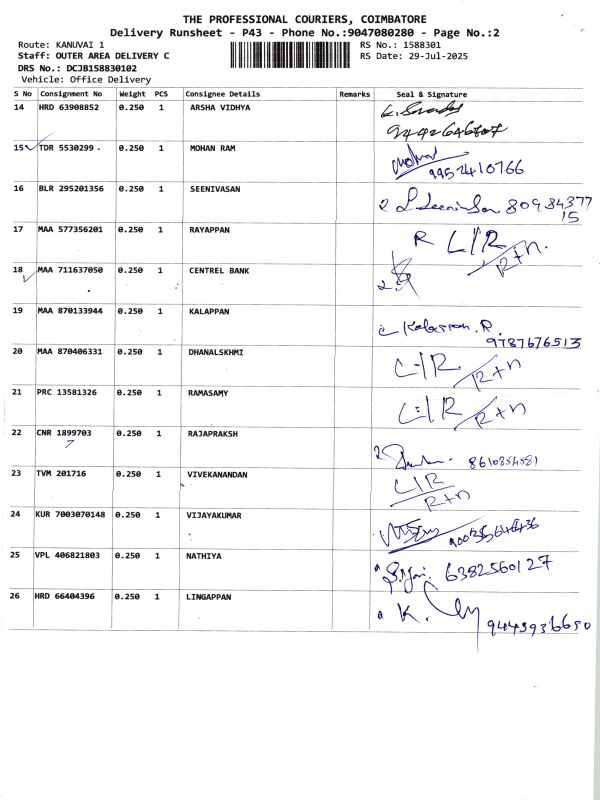 THE PROFESSIONAL COURIERS, COIMBATORE
Delivery Runsheet - P43 - Phone No.:9047080280 - Page No.:2
Route: KANUVAI 1 RS No.: 1588301
Staff: OUTER AREA DELIVERY C RS Date: 29-Jul-2025
DRS No.: DCJB158830102
Vehicle: Office Delivery
S No Consignment No Weight PCS Consignee Details Remarks Seal & Signature
14 HRD 63908852 0.250 1 ARSHA VIDHYA
15 TDR 5530299 0.250 1 MOHAN RAM
9952410766
16 BLR 295201356 0.250 1 SEENIVASAN 80984377
15
17 MAA 577356201 0.250 1 RAYAPPAN R L/R
R+n.
18 MAA 711637050 0.250 1 CENTREL BANK
19 MAA 870133944 0.250 1 KALAPPAN
9787676513
20 MAA 870406331 0.250 1 DHANALSKHMI C-/R R+n
21 PRC 13581326 0.250 1 RAMASAMY C-/R R+n
22 CNR 1899703 0.250 1 RAJAPRAKSH
7
23 TVM 201716 0.250 1 VIVEKANANDAN L/R
R+n
24 KUR 7003070148 0.250 1 VIJAYAKUMAR
25 VPL 406821803 0.250 1 NATHIYA 6382560127
26 HRD 66404396 0.250 1 LINGAPPAN K.